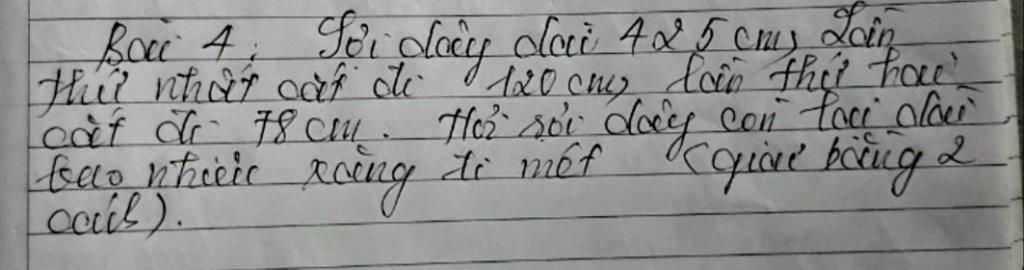 Bài 4: Sợi dây dài 425 cm, Lần
thứ nhất cắt đi 120 cm, lần thứ hai
cắt đi 78 cm. Hỏi sợi dây còn lại dài
bao nhiêu xăng ti mét (giải bằng 2
cách).